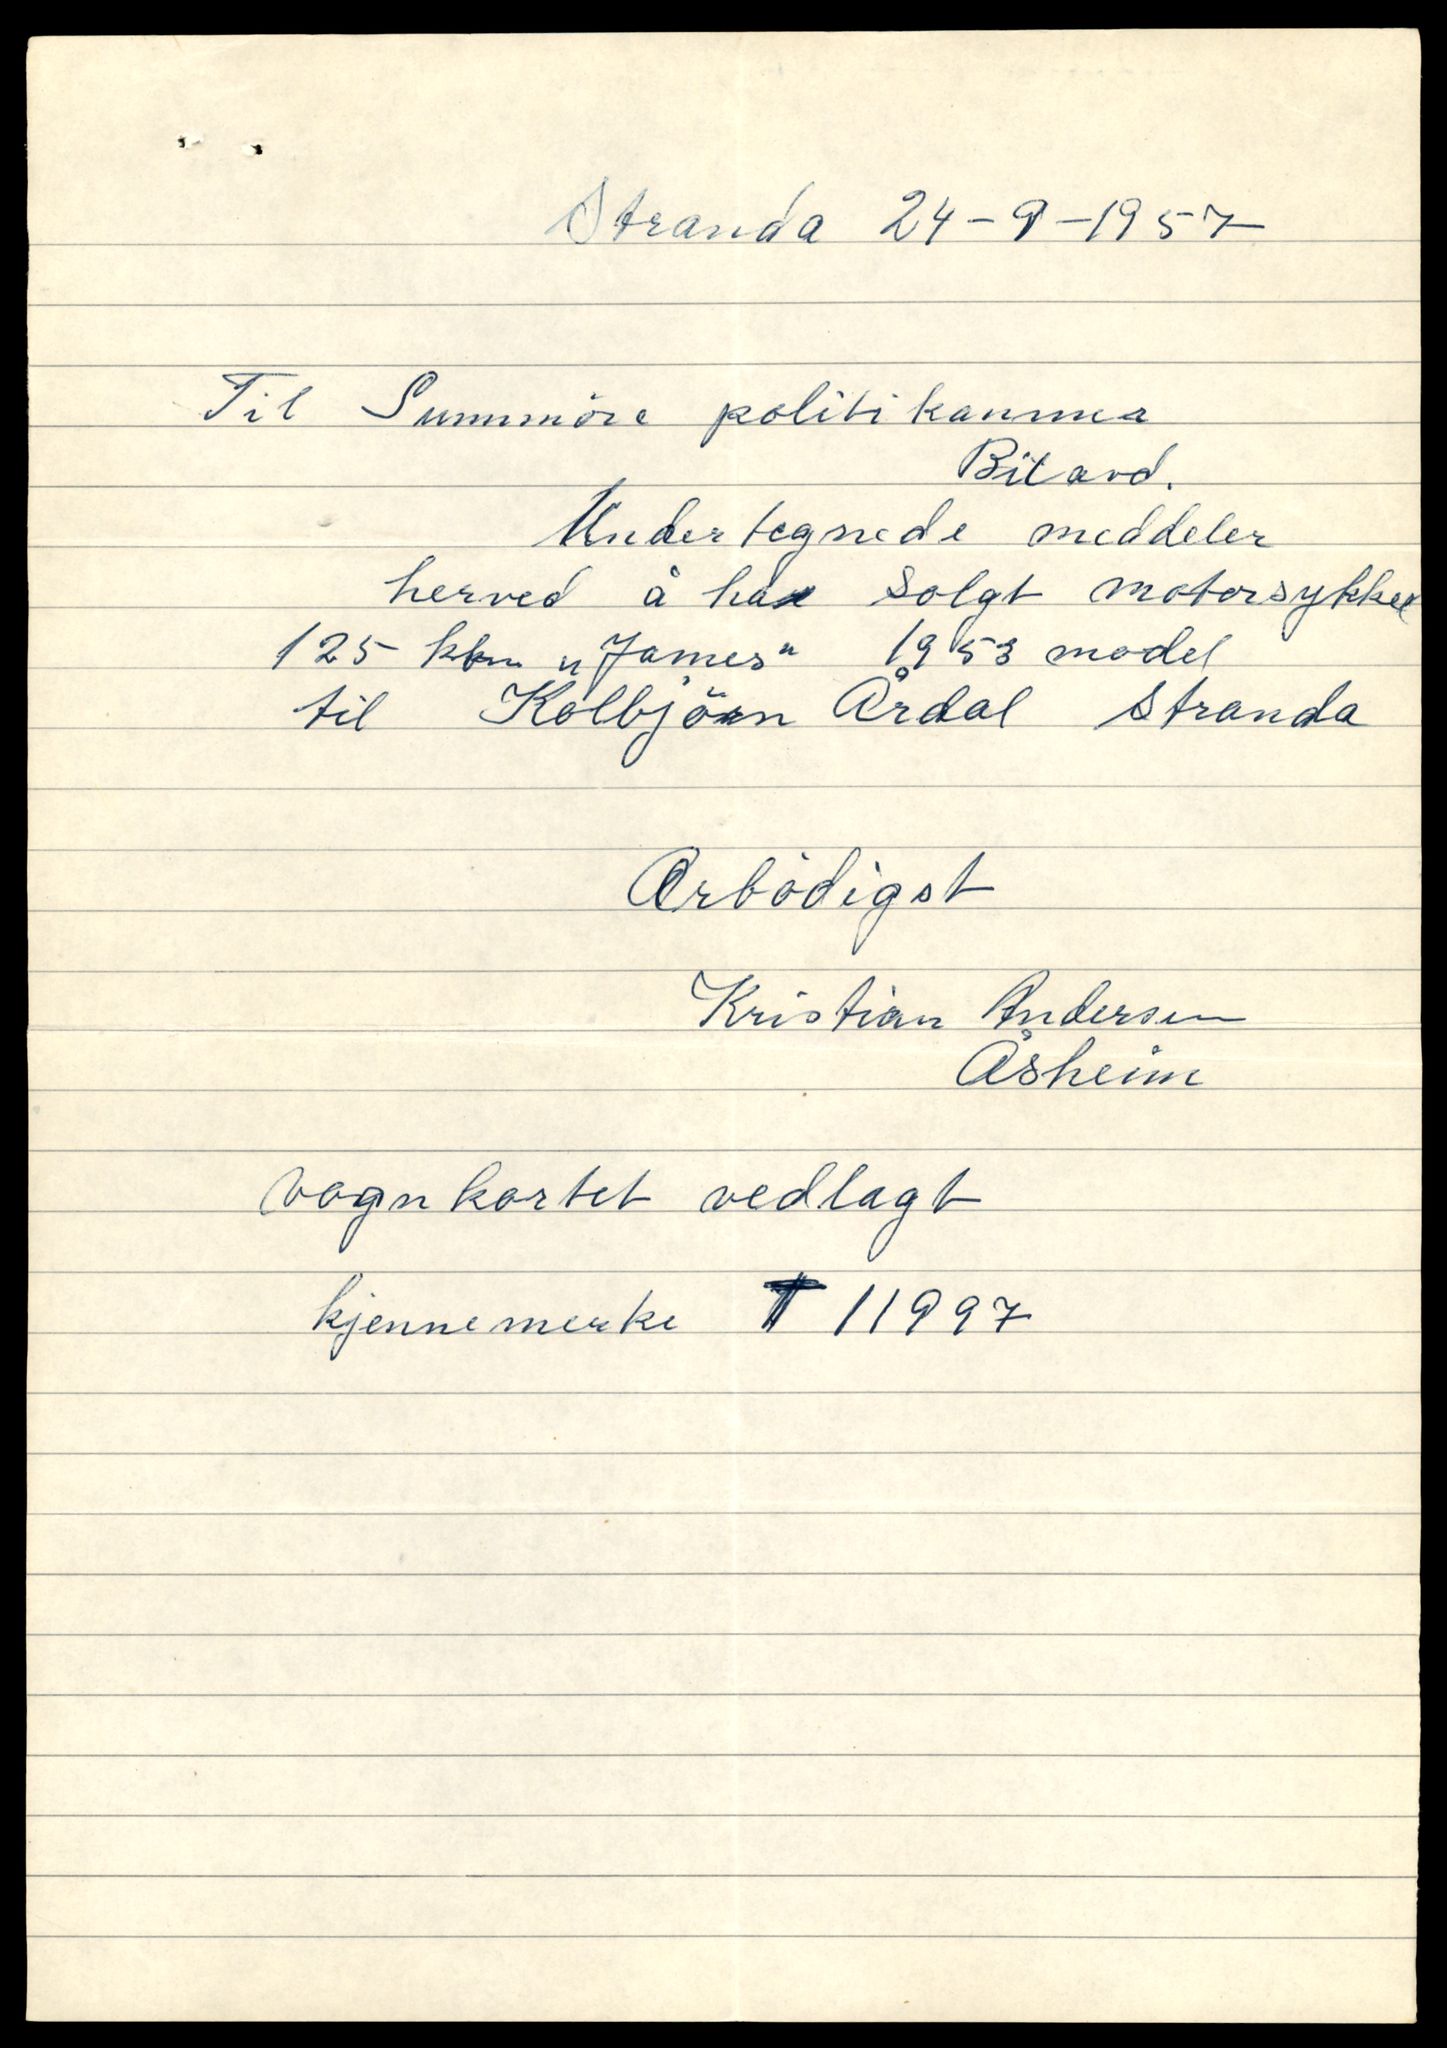 Stranda 24-9-1957
Til Sunnmöre politikamma
Bilavd.
Undertegnede meddeler
herved å ha solgt motorsykkel
125 kbm „James" 1953 model
til Kolbjörn Årdal Stranda
Ærbödigst
Kristian Andersen
Åsheim
Vognkortet vedlagt
kjennemerke T 11997